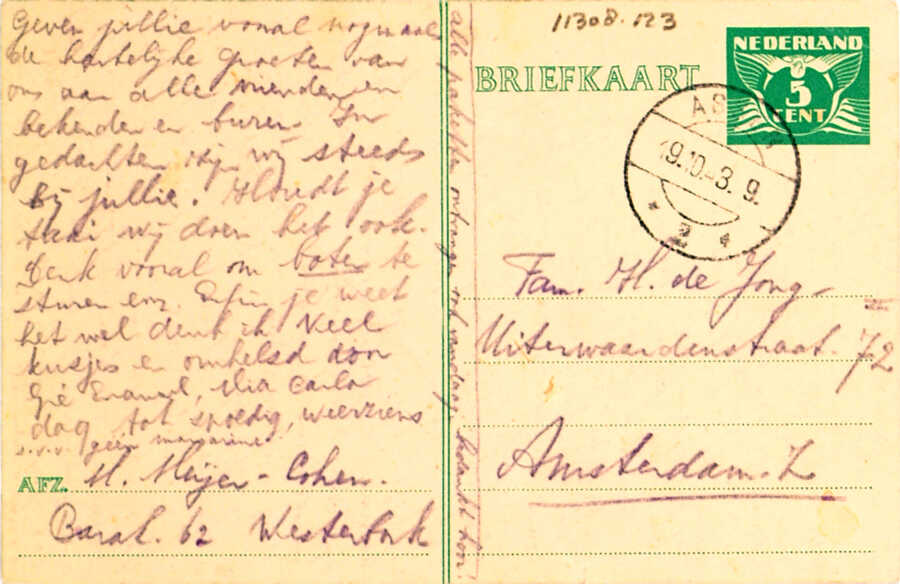 Geven jullie vooral nogmaals
de hartelijke groeten van
ons aan alle vrienden en
bekenden en buren. In
gedachten zijn wij steeds
bij jullie. Houdt je
taai wij doen het ook.
Denk vooral om boter te
sturen enz. Enfin je weet
het wel denk ik Veel
kusjes en omhelsd door
Gé Emanuel, Mia Carla
dag tot spoedig weerziens
s.v.v. geen margarine
AFZ. M. Meijer-Cohen.
Barak 62 Westerbork
alle pakketten ontvangen ook vandaag
11308.123
BRIEFKAART
NEDERLAND
5
CENT
19.10.-3. 9.
2
Fam. H. de Jong-
Uiterwaardenstraat. 72 II
Amsterdam. Z